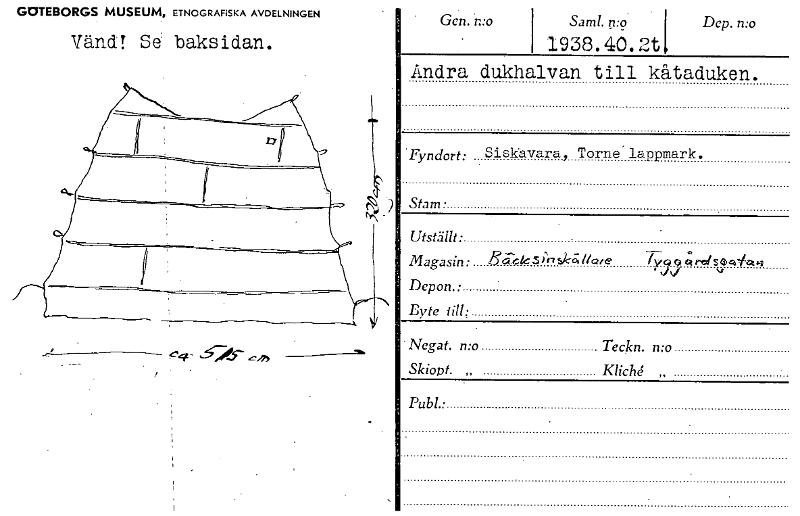 GÖTEBORGS MUSEUM, ETNOGRAFISKA AVDELNINGEN
Vänd! Se baksidan.
320 cm
ca 515 cm
Gen. n:o
Saml. n:o
Dep. n:o
1938.40.2t.
Andra dukhalvan till kåtaduken.
Fyndort: Siskavara, Torne lappmark.
Stam:
Utställt:
Magasin: Bäcksinskällare Tyggårdsgatan
Depon.:
Byte till:
Negat. n:o Teckn. n:o
Skiopt. „ Kliché „
Publ.: